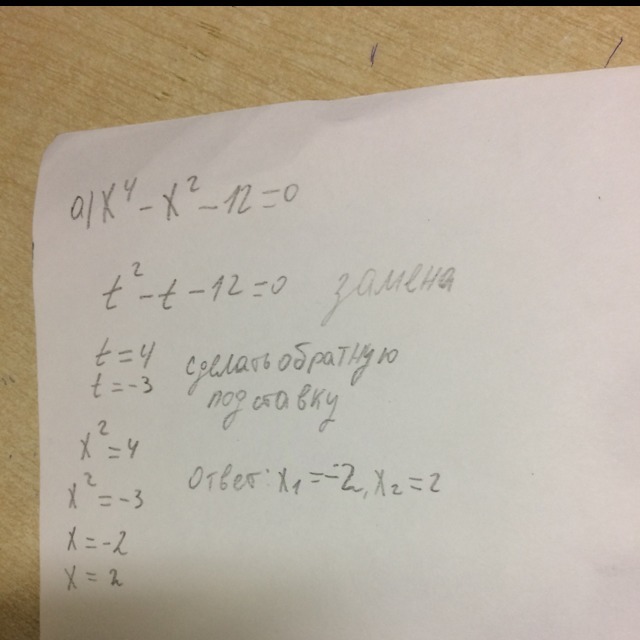 а) x⁴ - x² - 12 = 0
t² - t - 12 = 0 замена
t = 4
t = -3
сделать обратную
подставку
x² = 4
x² = -3
x = -2
x = 2
Ответ: x₁ = -2, x₂ = 2